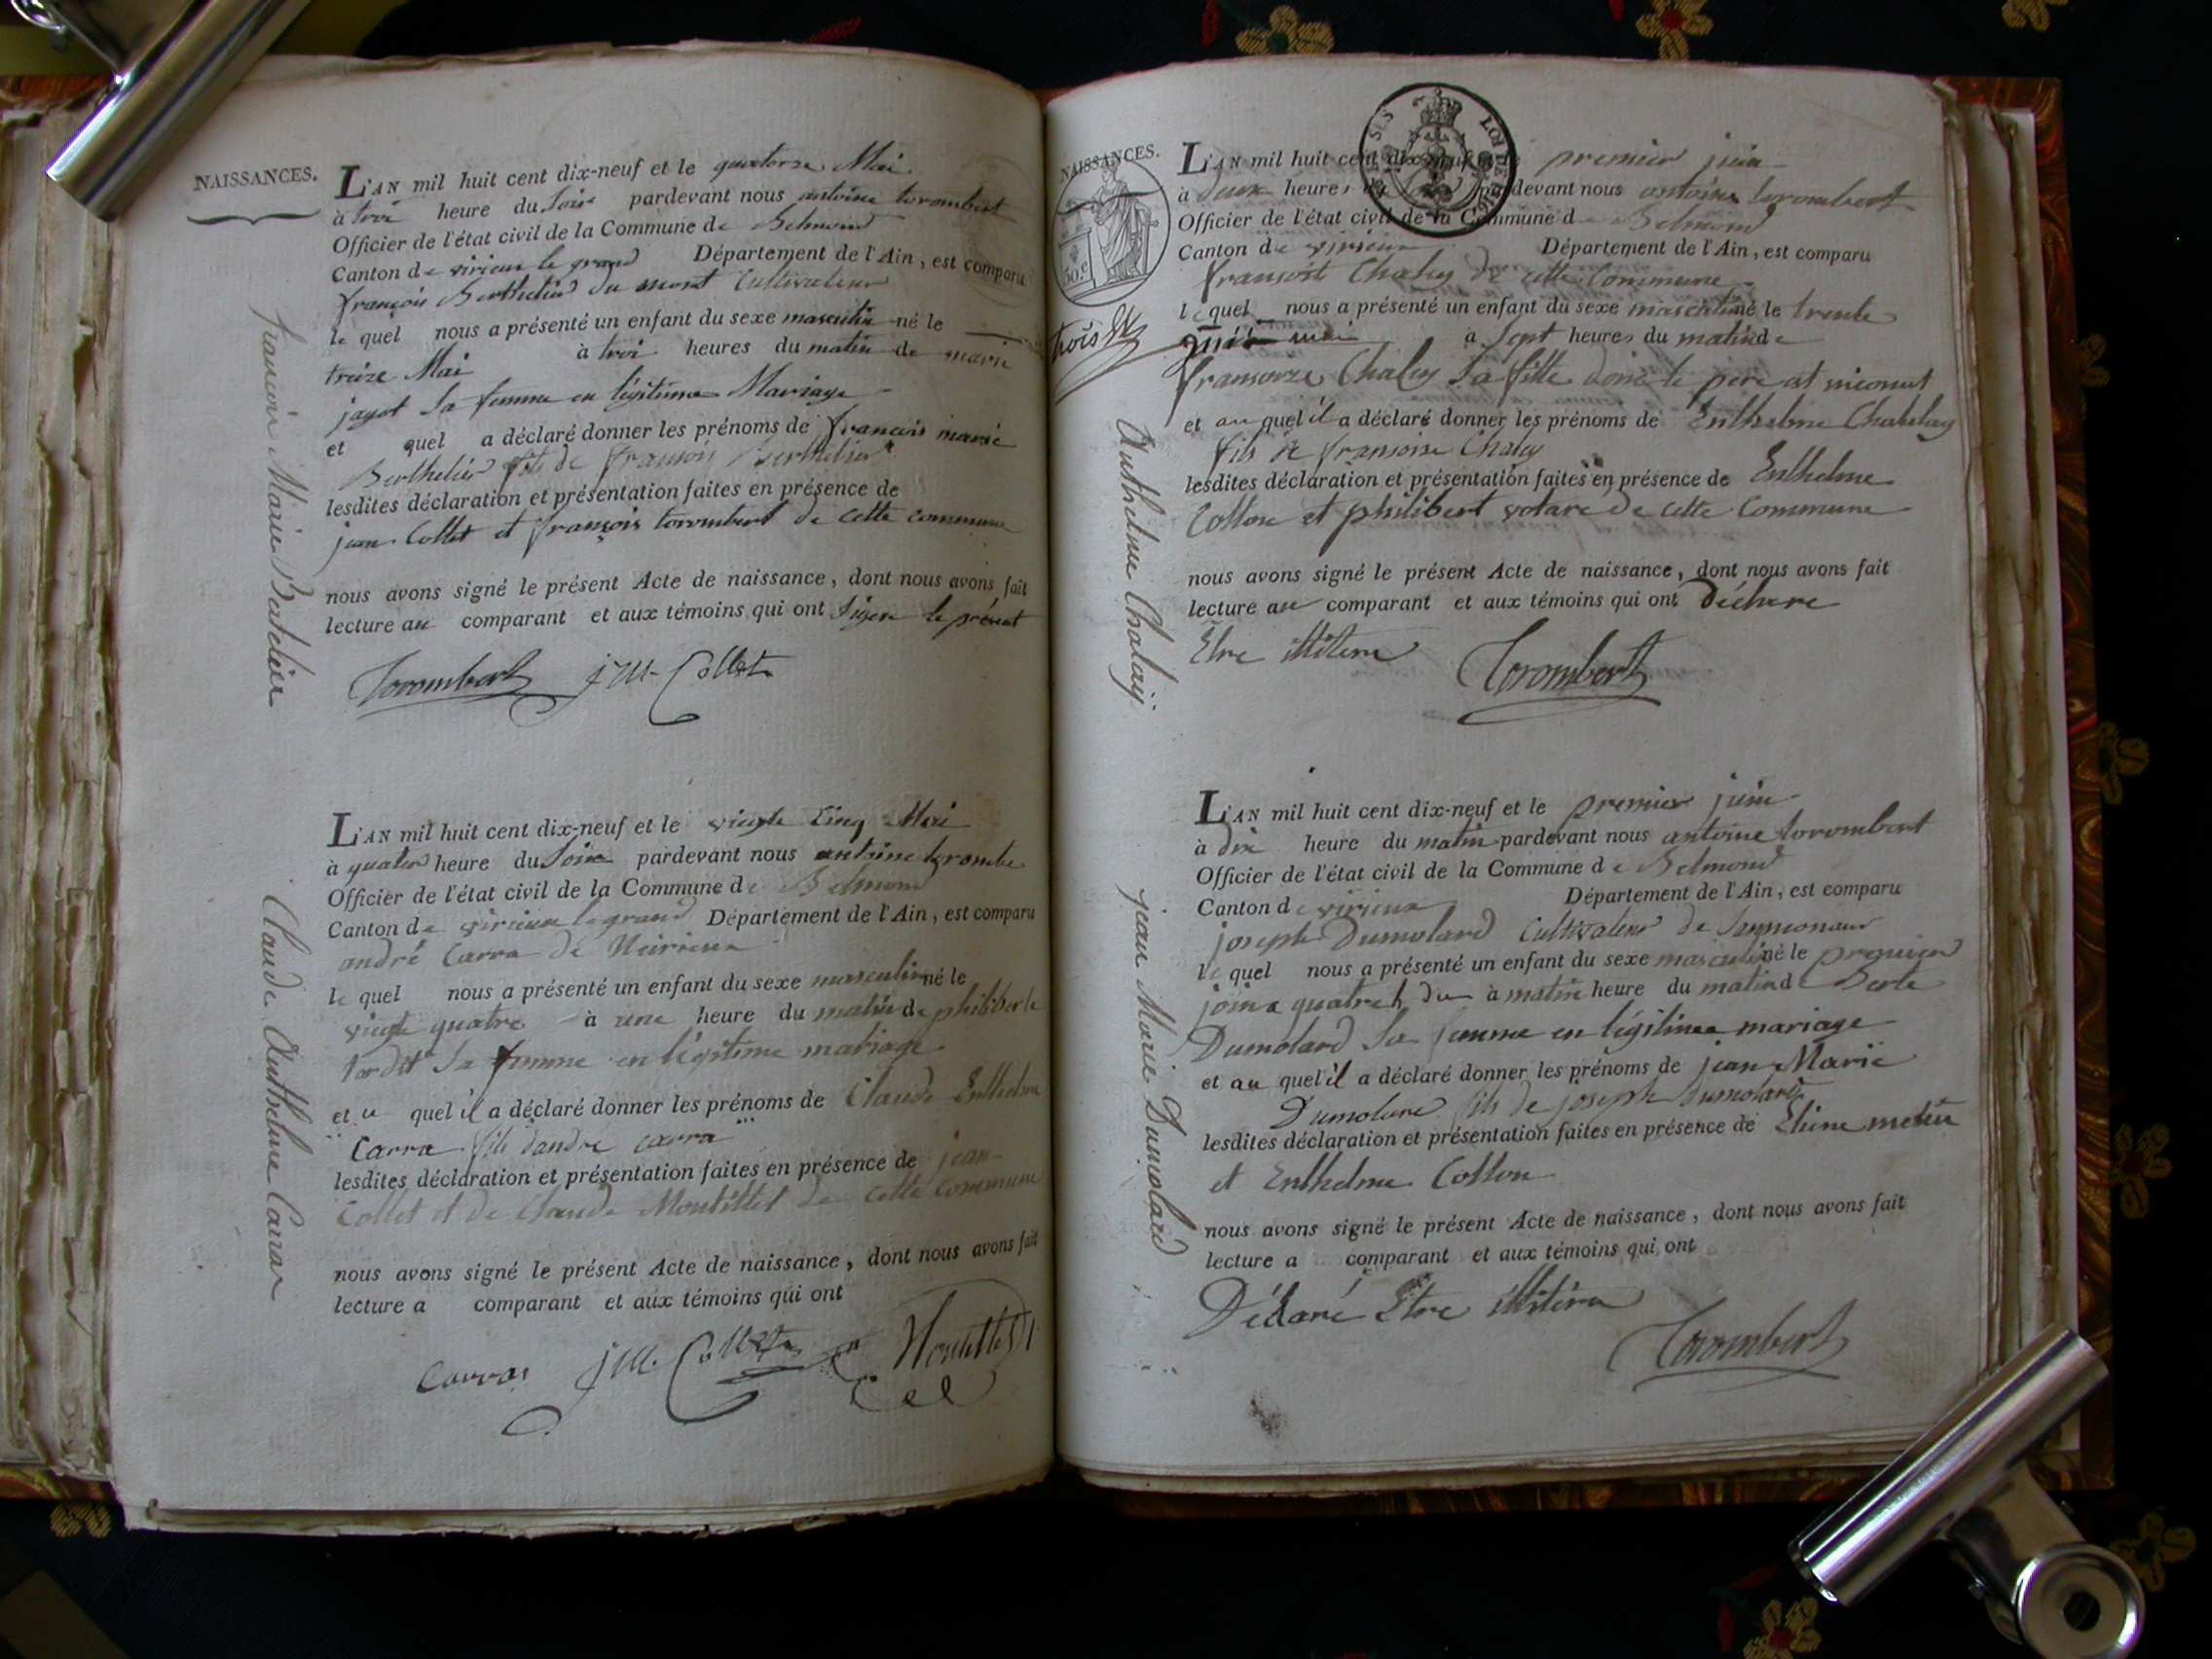 NAISSANCES.
L'AN mil huit cent dix-neuf et le quatorze Mai
à troi heure du Soire pardevant nous antoine torombert
Officier de l'état civil de la Commune de Belmond
Canton de virieu le grand Département de l'Ain, est comparu
françois Berthelier du mont Cultivateur
le quel nous a présenté un enfant du sexe masculin né le
treize Mai à troi heures du matin de marie
jayot Sa femme en légitime Mariage
et quel a déclaré donner les prénoms de francois marie
Berthelier fils de fransois Berthelier
lesdites déclaration et présentation faites en présence de
jean Collet et françois torombert de cette commune
nous avons signé le présent Acte de naissance, dont nous avons fait
lecture au comparant et aux témoins qui ont Signe le présent
Torombert j m Collet
francois Marie Batelier
L'AN mil huit cent dix-neuf et le vingte Cinq Mai
à quatre heure du Soire pardevant nous antoine torombe
Officier de l'état civil de la Commune de Belmond
Canton de virieu le grand Département de l'Ain, est comparu
andré Carra de
le quel nous a présenté un enfant du sexe masculin né le
vingte quatre à une heure du matin de philiberte
Sa femme en légitime mariage
et a quel il a déclaré donner les prénoms de Claude Enthelme
Carra fils dandré carra
lesdites déclaration et présentation faites en présence de jean
Collet et de Claude Montillet de cette Commune
nous avons signé le présent Acte de naissance, dont nous avons fait
lecture a comparant et aux témoins qui ont
Carras j m. Collet Montillet
Claude Anthelme Carrar
NAISSANCES.
L'AN mil huit cent dix-neuf et le premier juin
à deux heures du Soire pardevant nous antoine torombert
Officier de l'état civil de la Commune de Belmond
Canton de virieux Département de l'Ain, est comparu
fransoit Chaley de cette Commune
le quel nous a présenté un enfant du sexe masculin né le trente
mai à Sept heures du matin de
fransoize Chaley Sa fille dont le père ast inconnut
et au quel il a déclaré donner les prénoms de Enthelme
fils de fransoise Chaley
lesdites déclaration et présentation faites en présence de Enthelme
Collon et philibert de cette Commune
nous avons signé le présent Acte de naissance, dont nous avons fait
lecture au comparant et aux témoins qui ont déclare
Etre illitere Torombert
Anthelme Chalaÿ
L'AN mil huit cent dix-neuf et le premier juin
à dix heure du matin pardevant nous antoine torombert
Officier de l'état civil de la Commune de Belmond
Canton de virieux Département de l'Ain, est comparu
joseph Dumolard Cultivateur de
le quel nous a présenté un enfant du sexe masculin né le premier
join a quatre h du à matin heure du matin de Berte
Dumolard Sa femme en légitime mariage
et au quel il a déclaré donner les prénoms de jean Marië
Dumolare fils de joseph Dumolard
lesdites déclaration et présentation faites en présence de
et Enthelme Collon
nous avons signé le présent Acte de naissance, dont nous avons fait
lecture a comparant et aux témoins qui ont
Déclaré Etre illitéra
Torombert
jean Marie Dumolard